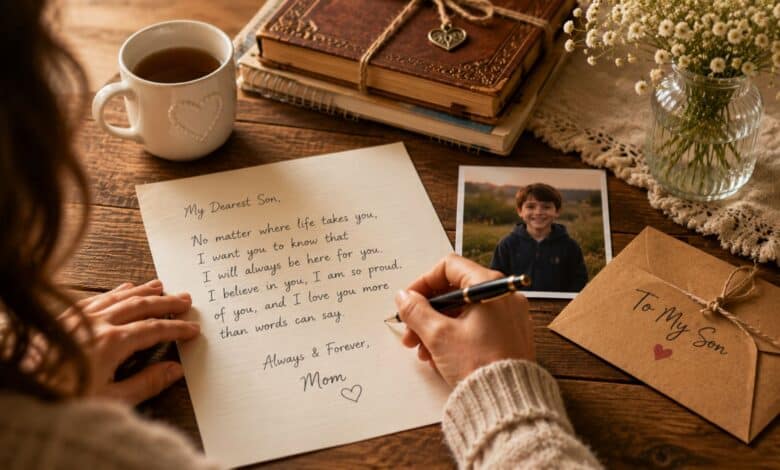 My Dearest Son,
No matter where life takes you,
I want you to know that
I will always be here for you.
I believe in you, I am so proud.
of you, and I love you more
than words can say.
Always & Forever,
Mom
To My Son